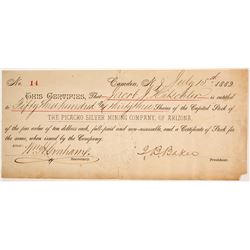 No. 14 Camden, N. J. July 15th 1882
THIS CERTIFIES, That Jacob J. is entitled
to Fifty two hundred & thirty three Shares of the Capital Stock of
THE PICACHO SILVER MINING COMPANY, OF ARIZONA,
of the par value of ten dollars each, full-paid and non-assessable, and a Certificate of Stock for
the same, when issued by the Company.
Wm. H. Abrahams. J. B. Baker
Secretary. President.